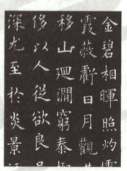 金碧相暉照灼
霞蔽虧日月觀
移山迴澗窮泰
侈以人從欲良
深尤至於炎景